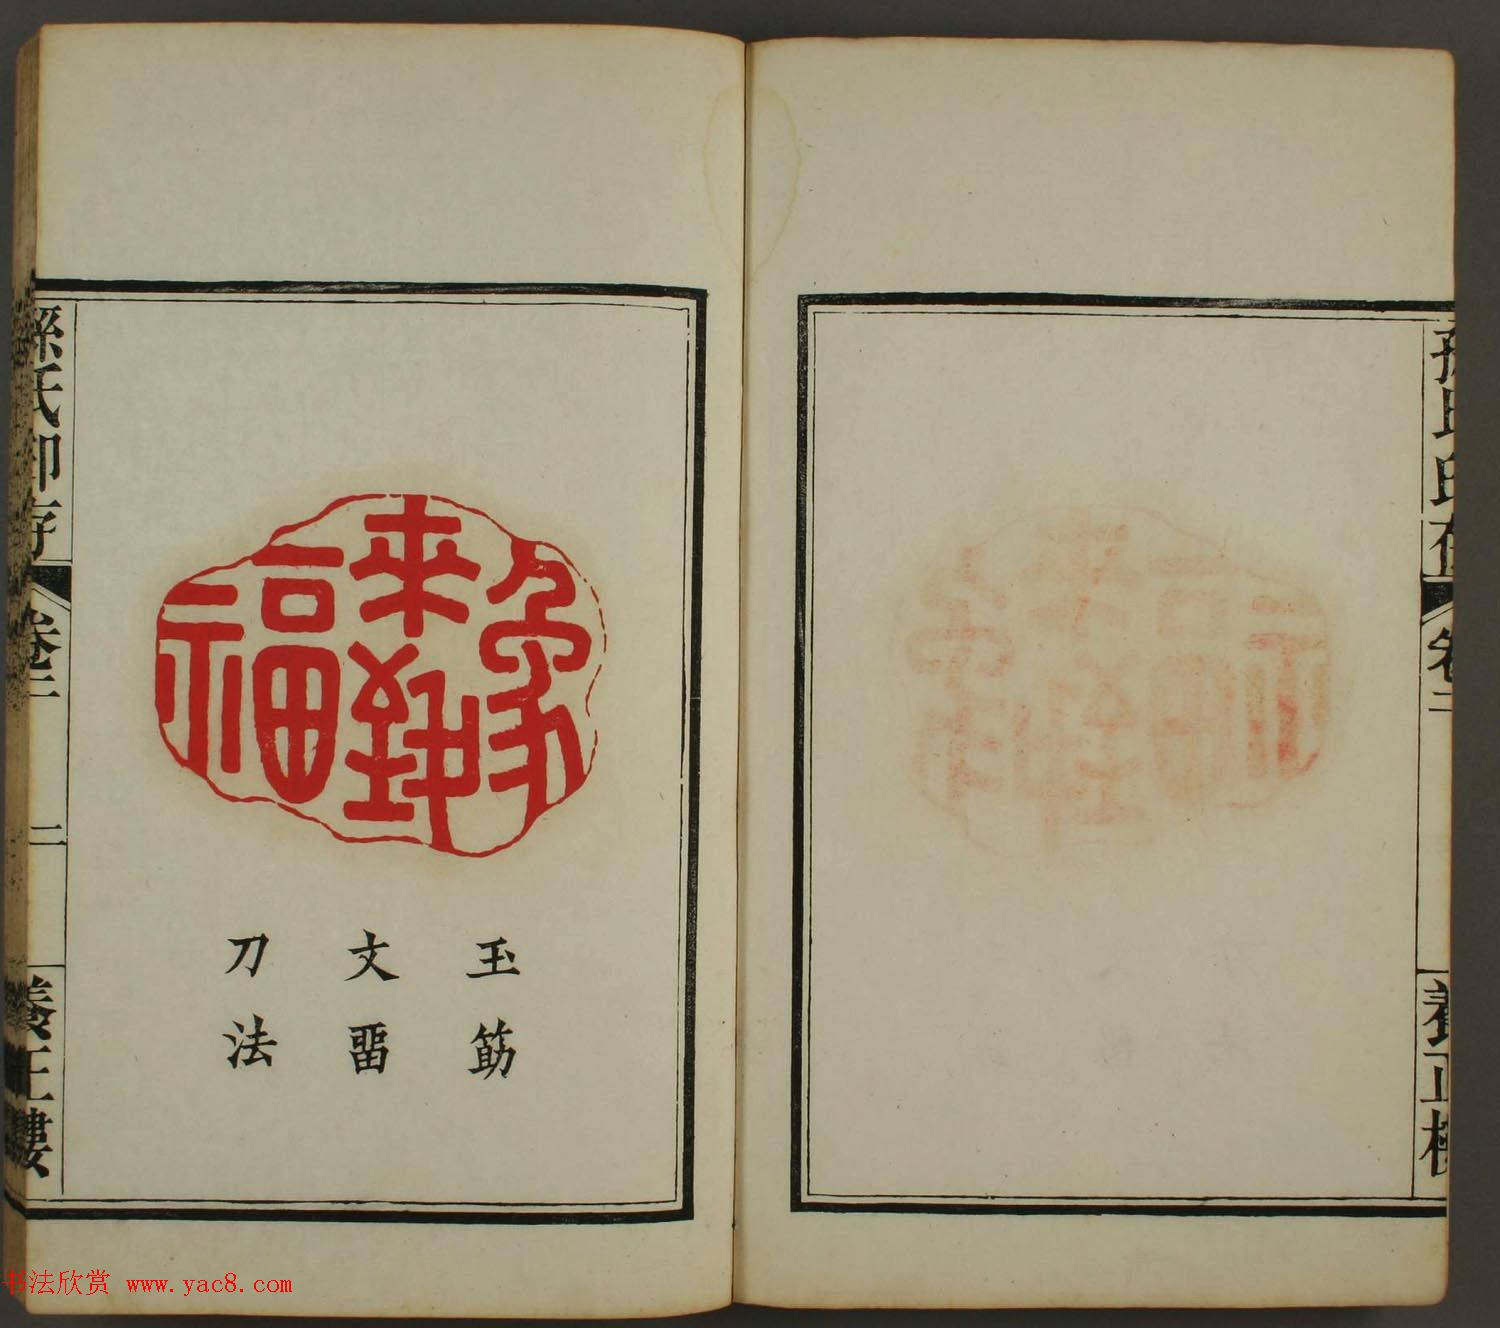 孫氏印存
卷三
養正樓
來
福
玉筯
文畱
刀法
孫氏印存
卷三
二
養正樓
书法欣赏 www.yac8.com